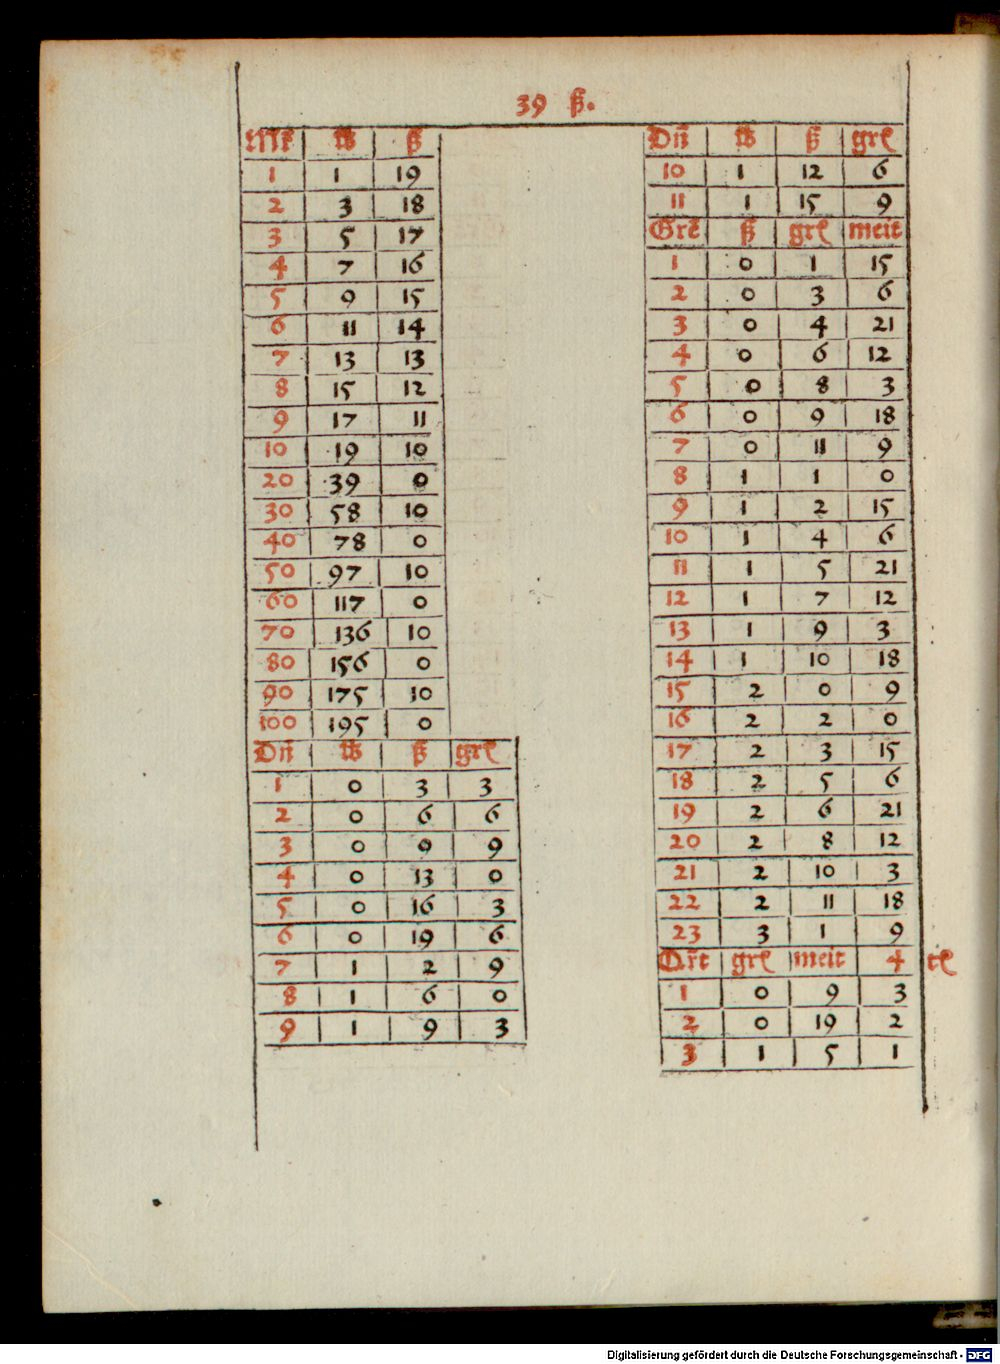 39 ß.
Mr̃ lb ß
1 1 19
2 3 18
3 5 17
4 7 16
5 9 15
6 11 14
7 13 13
8 15 12
9 17 11
10 19 10
20 39 0
30 58 10
40 78 0
50 97 10
60 117 0
70 136 10
80 156 0
90 175 10
100 195 0
Dñ lb ß grſ
1 0 3 3
2 0 6 6
3 0 9 9
4 0 13 0
5 0 16 3
6 0 19 6
7 1 2 9
8 1 6 0
9 1 9 3
Dñ lb ß grſ
10 1 12 6
11 1 15 9
Gr̃t ß grſ meit
1 0 1 15
2 0 3 6
3 0 4 21
4 0 6 12
5 0 8 3
6 0 9 18
7 0 11 9
8 1 1 0
9 1 2 15
10 1 4 6
11 1 5 21
12 1 7 12
13 1 9 3
14 1 10 18
15 2 0 9
16 2 2 0
17 2 3 15
18 2 5 6
19 2 6 21
20 2 8 12
21 2 10 3
22 2 11 18
23 3 1 9
Or̃t grſ meit 4 tſ
1 0 9 3
2 0 19 2
3 1 5 1
Digitalisierung gefördert durch die Deutsche Forschungsgemeinschaft - DFG